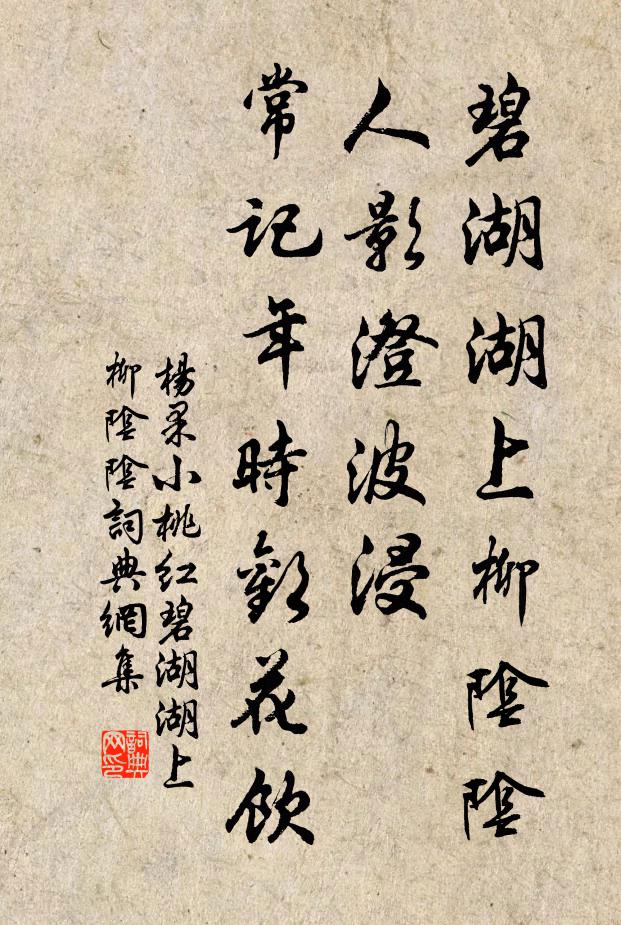 碧湖湖上柳陰陰
人影澄波浸
常記年時歡花飲
楊果小桃紅碧湖湖上
柳陰陰詞典網集
詞典
网印